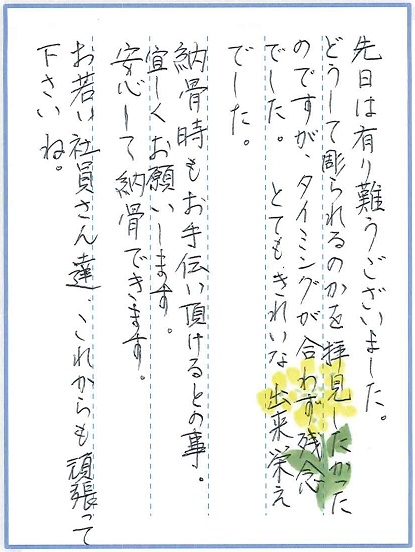 先日は有り難うございました。
どうして彫られるのかを拝見したかった
のですが、タイミングが合わず残念
でした。　とてもきれいな出来栄え
でした。
納骨時もお手伝い頂けるとの事。
宜しくお願いします。
安心して納骨できます。
お若い社員さん達、これからも頑張って
下さいね。